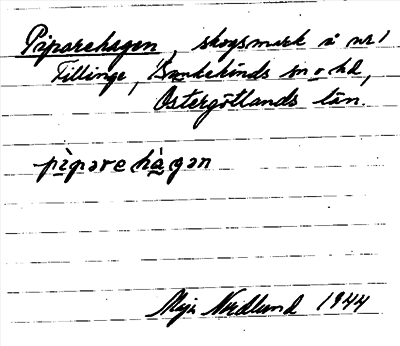 Piparehagen, skogsmark å nr 1
Fillinge, Bankekinds sn o hd,
Östergötlands län.
pìparehàgən
Maja Nordlund 1944